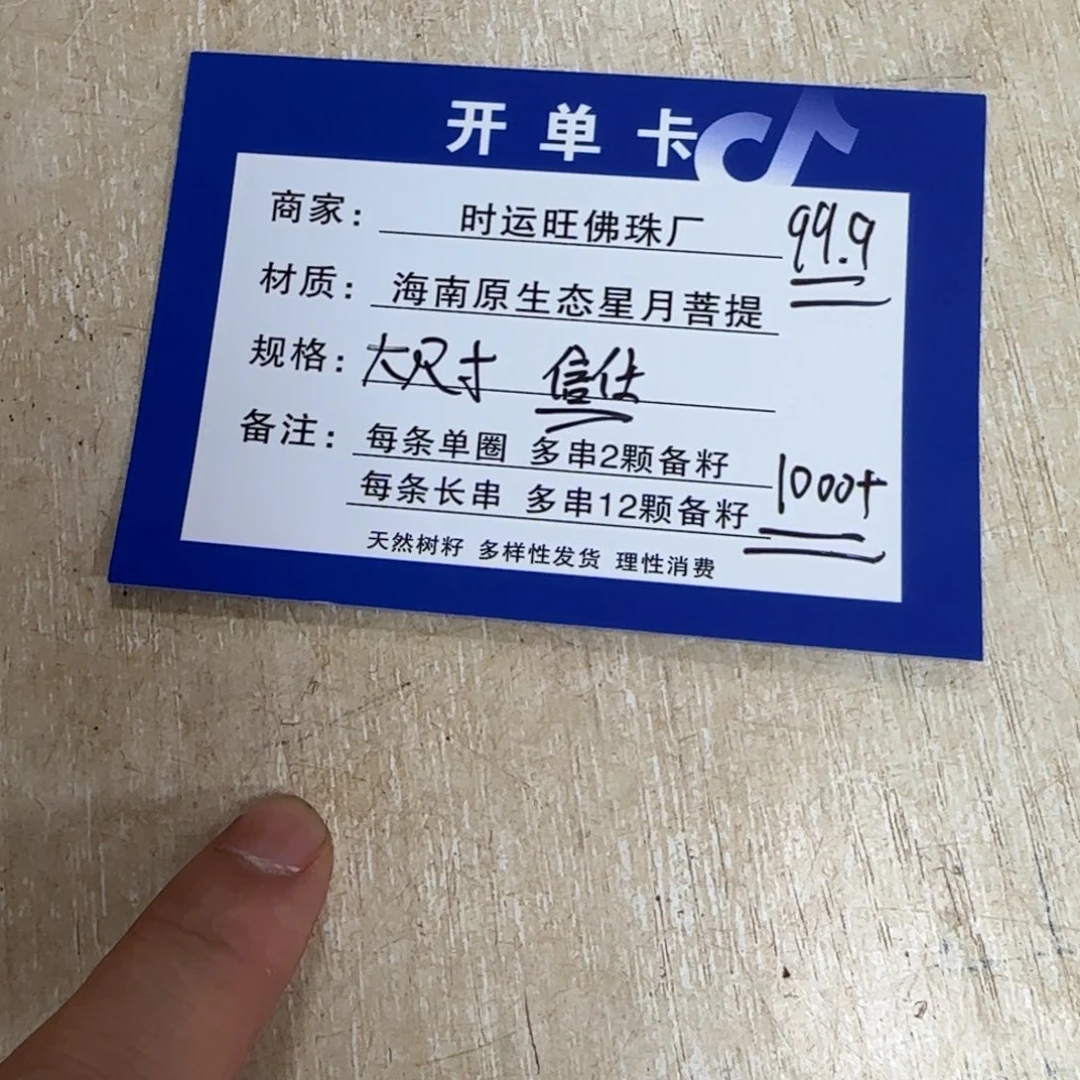 开单卡
商家: 时运旺佛珠厂 99.9
材质: 海南原生态星月菩提
规格: 大尺寸 信仕
备注: 每条单圈 多串2颗备籽
每条长串 多串12颗备籽 1000+
天然树籽 多样性发货 理性消费